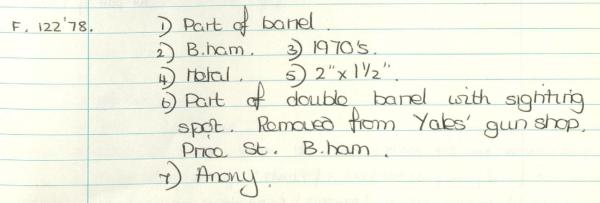 F. 122'78. 1) Part of barrel.
2) B.ham. 3) 1970's.
4) Metal. 5) 2" x 1½".
6) Part of double barrel with sighting
spot. Removed from Yates' gun shop,
Price St. B.ham.
7) Anony.